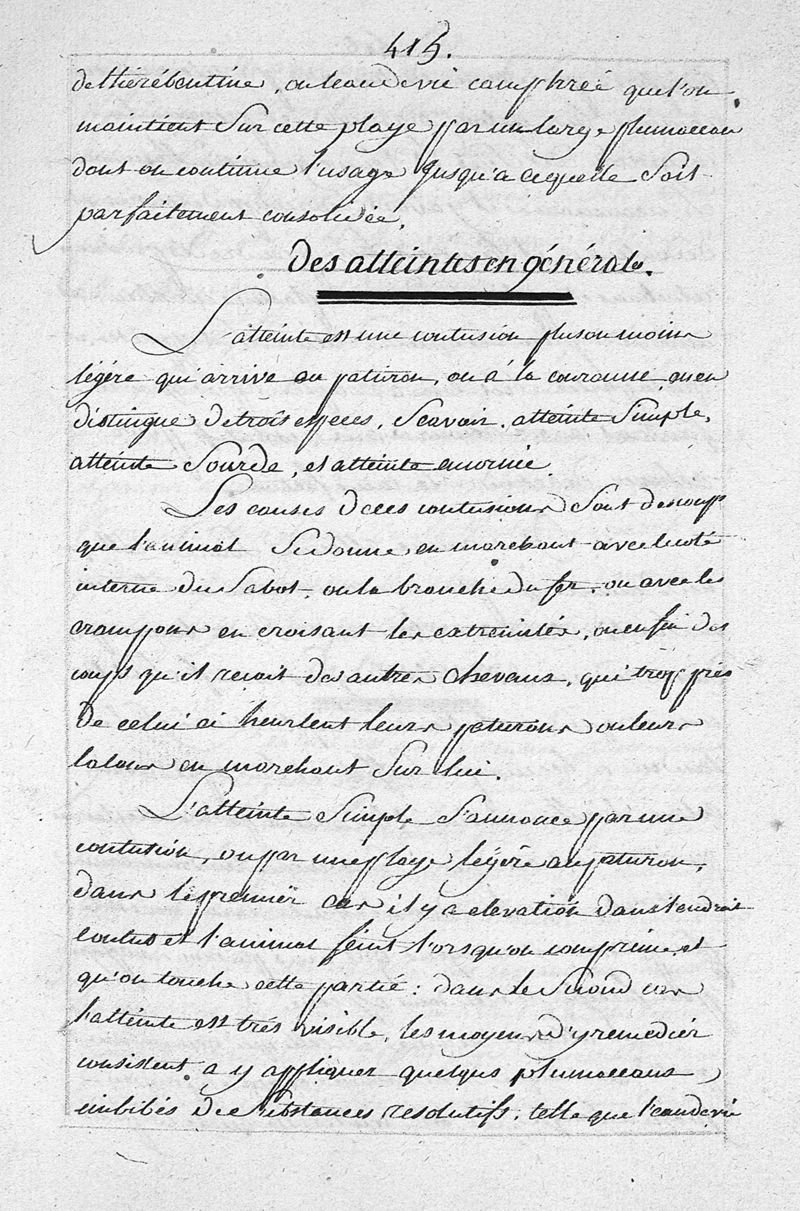 415.
de thérébentine, ou leau de vie camphreé que l'on
maintient Sur cette playe par un large plumaceau
dont on continue l'usage Jusqu'a ce quelle Soit
parfaitement consolideé.
Des atteintes en général.
L'atteinte est une contusion plus ou moins
légére qui arrive au paturon, ou à la couronne, on en
distingue de trois especes, Scavoir, atteinte Simple,
atteinte Sourde, et atteinte encorneé
Les causes de ces contusions Sont des coups
que l'animal Se donne en marchant avec le coté
interne du Sabot, ou la branche du fer, ou avec les
crampons en croisant les extremités, ou enfin des
coups qu'il recoit des autres chevaux, qui trop près
de celui ci heurtent leurs paturons ou leurs
talons en marchant Sur lui.
L'atteinte Simple S'annonce par une
contusion, ou par une playe légére au paturon,
dans le premier cas il y a elevation dans l'endroit
contus et l'animal feint l'orsqu'on comprime et
qu'on touche cette partie : dans le Second cas
l'atteinte est trés visible, les moyens d'y remedier
consistent a y appliquer quelques plumaceaux
imbibés de Substances resolutifs, telle que l'eau de vie